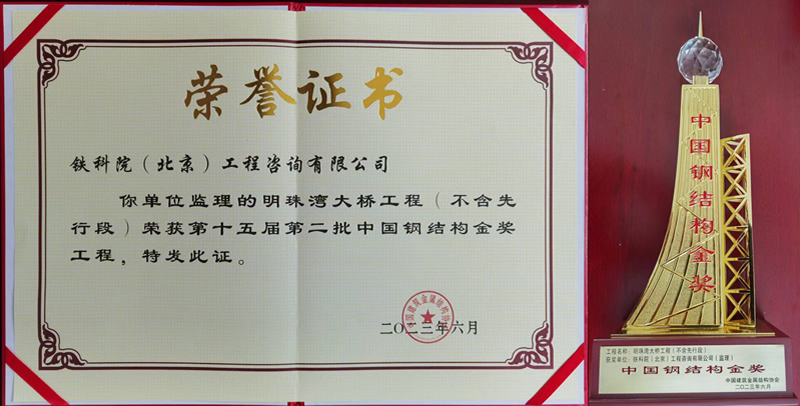 荣誉证书
铁科院（北京）工程咨询有限公司
你单位监理的明珠湾大桥工程（不含先
行段）荣获第十五届第二批中国钢结构金奖
工程，特发此证。
中国建筑金属结构协会
二〇二三年六月
中国钢结构金奖
工程名称：明珠湾大桥工程（不含先行段）
获奖单位：铁科院（北京）工程咨询有限公司（监理）
中国钢结构金奖
中国建筑金属结构协会
二〇二三年六月